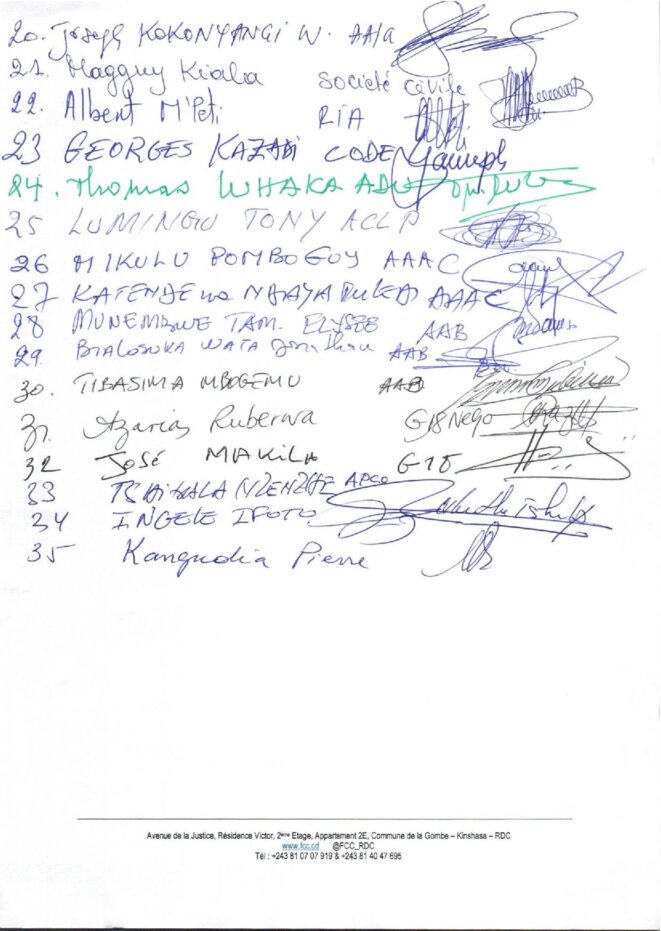 20. Joseph KOKONYANGI W. AAIa
21. Magguy Kiala Societé civile
22. Albert M'Peti RIA
23 GEORGES KAZADI CODE
24. Thomas LUHAKA ADU
25 LUMINGU TONY ACLP
26 MIKULU POMBO GUY AAAC
27 KATENDE wa AAAC
28 MUNEMBWE TAM. ELYSEE AAB
29. WATA Jonathan AAB
30. TIBASIMA MBOGEMU AAB
31 Azarias Ruberwa G18 Nego
32 José MAKILA G18
33 APCO
34 INGELE IFOTO
35 Kangudia Pierre
Avenue de la Justice, Résidence Victor, 2ème Etage, Appartement 2E, Commune de la Gombe – Kinshasa – RDC
www.fcc.cd @FCC_RDC
Tél : +243 81 07 07 919 & +243 81 40 47 695